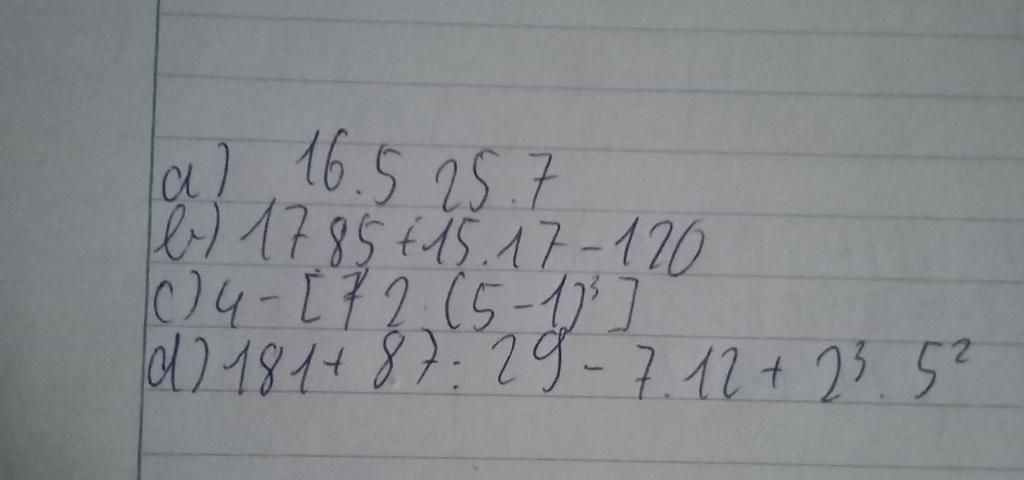 a) 16.5 25.7
b) 17 85 + 15.17 - 120
c) 4 - [7 2 . (5 - 1)³]
d) 181 + 87 : 29 - 7.12 + 2³ . 5²